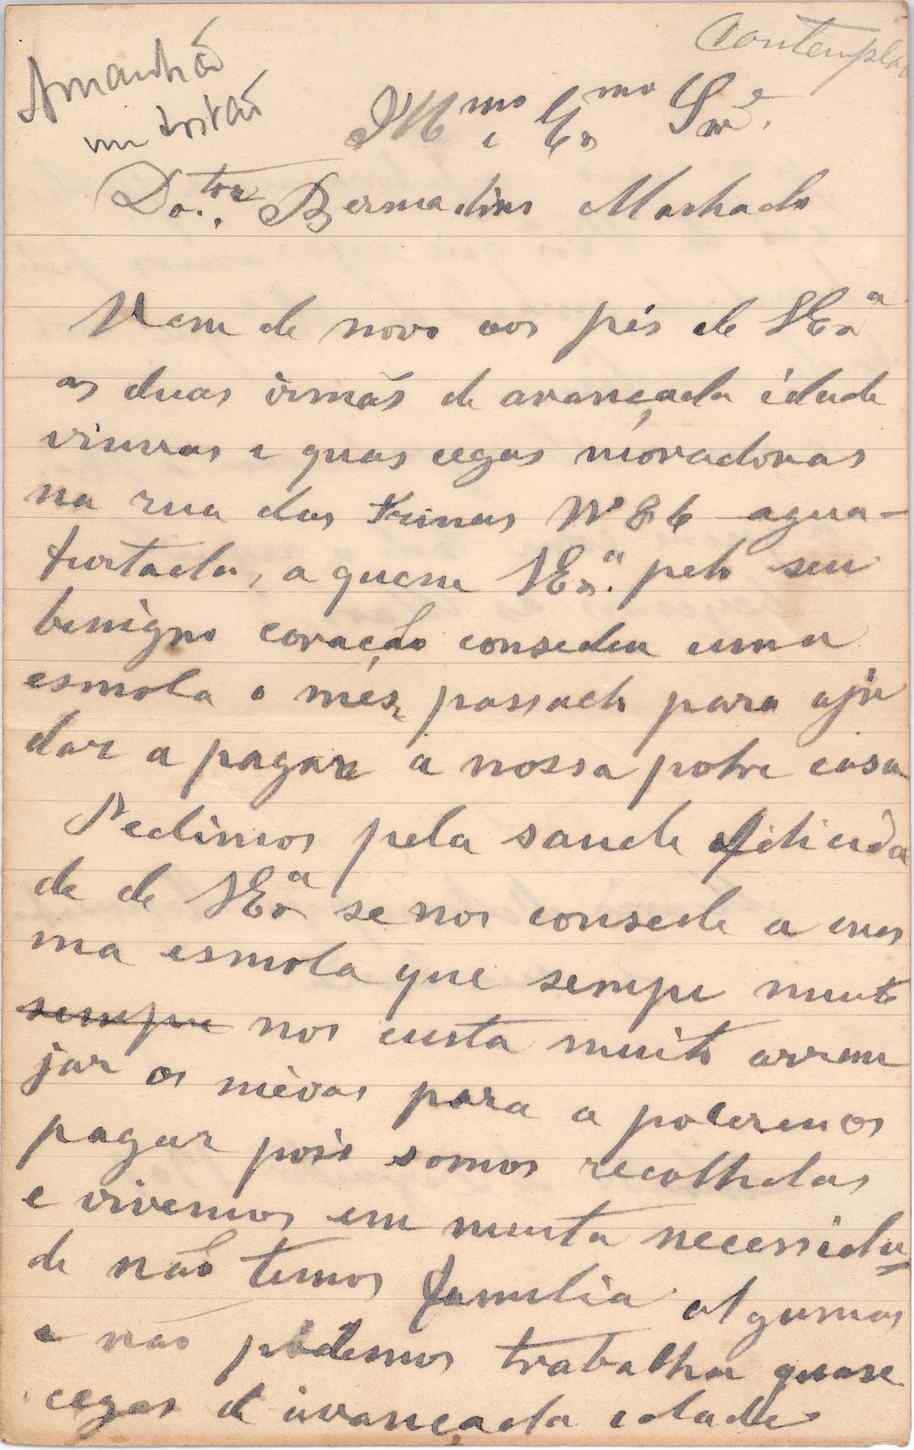 Amanhã
um tostão
Contemplado
Illmo e Exmo Snr.
Dotor Bernadino Machado
Vem de novo aos pés de VExa
as duas irmãs de avançada idade
viuvas e quas cegas moradoras
na rua das Trinas Nº 86 agua-
furtada, a quem VExa. pelo seu
benigno coração consedeu uma
esmola o més passado para aju
dar a pagar a nossa pobre casa
Pedimos pela saude filicida
de de VExa se nos consede a mes
ma esmola que sempe muito
sempre nos custa muito arren
jar os meios para a poderemos
pagar pois somos recolhidas
e vivemos em muita necessida
de não temos familia algumas
e não podemos trabalhar quase
cegas de avançada idade